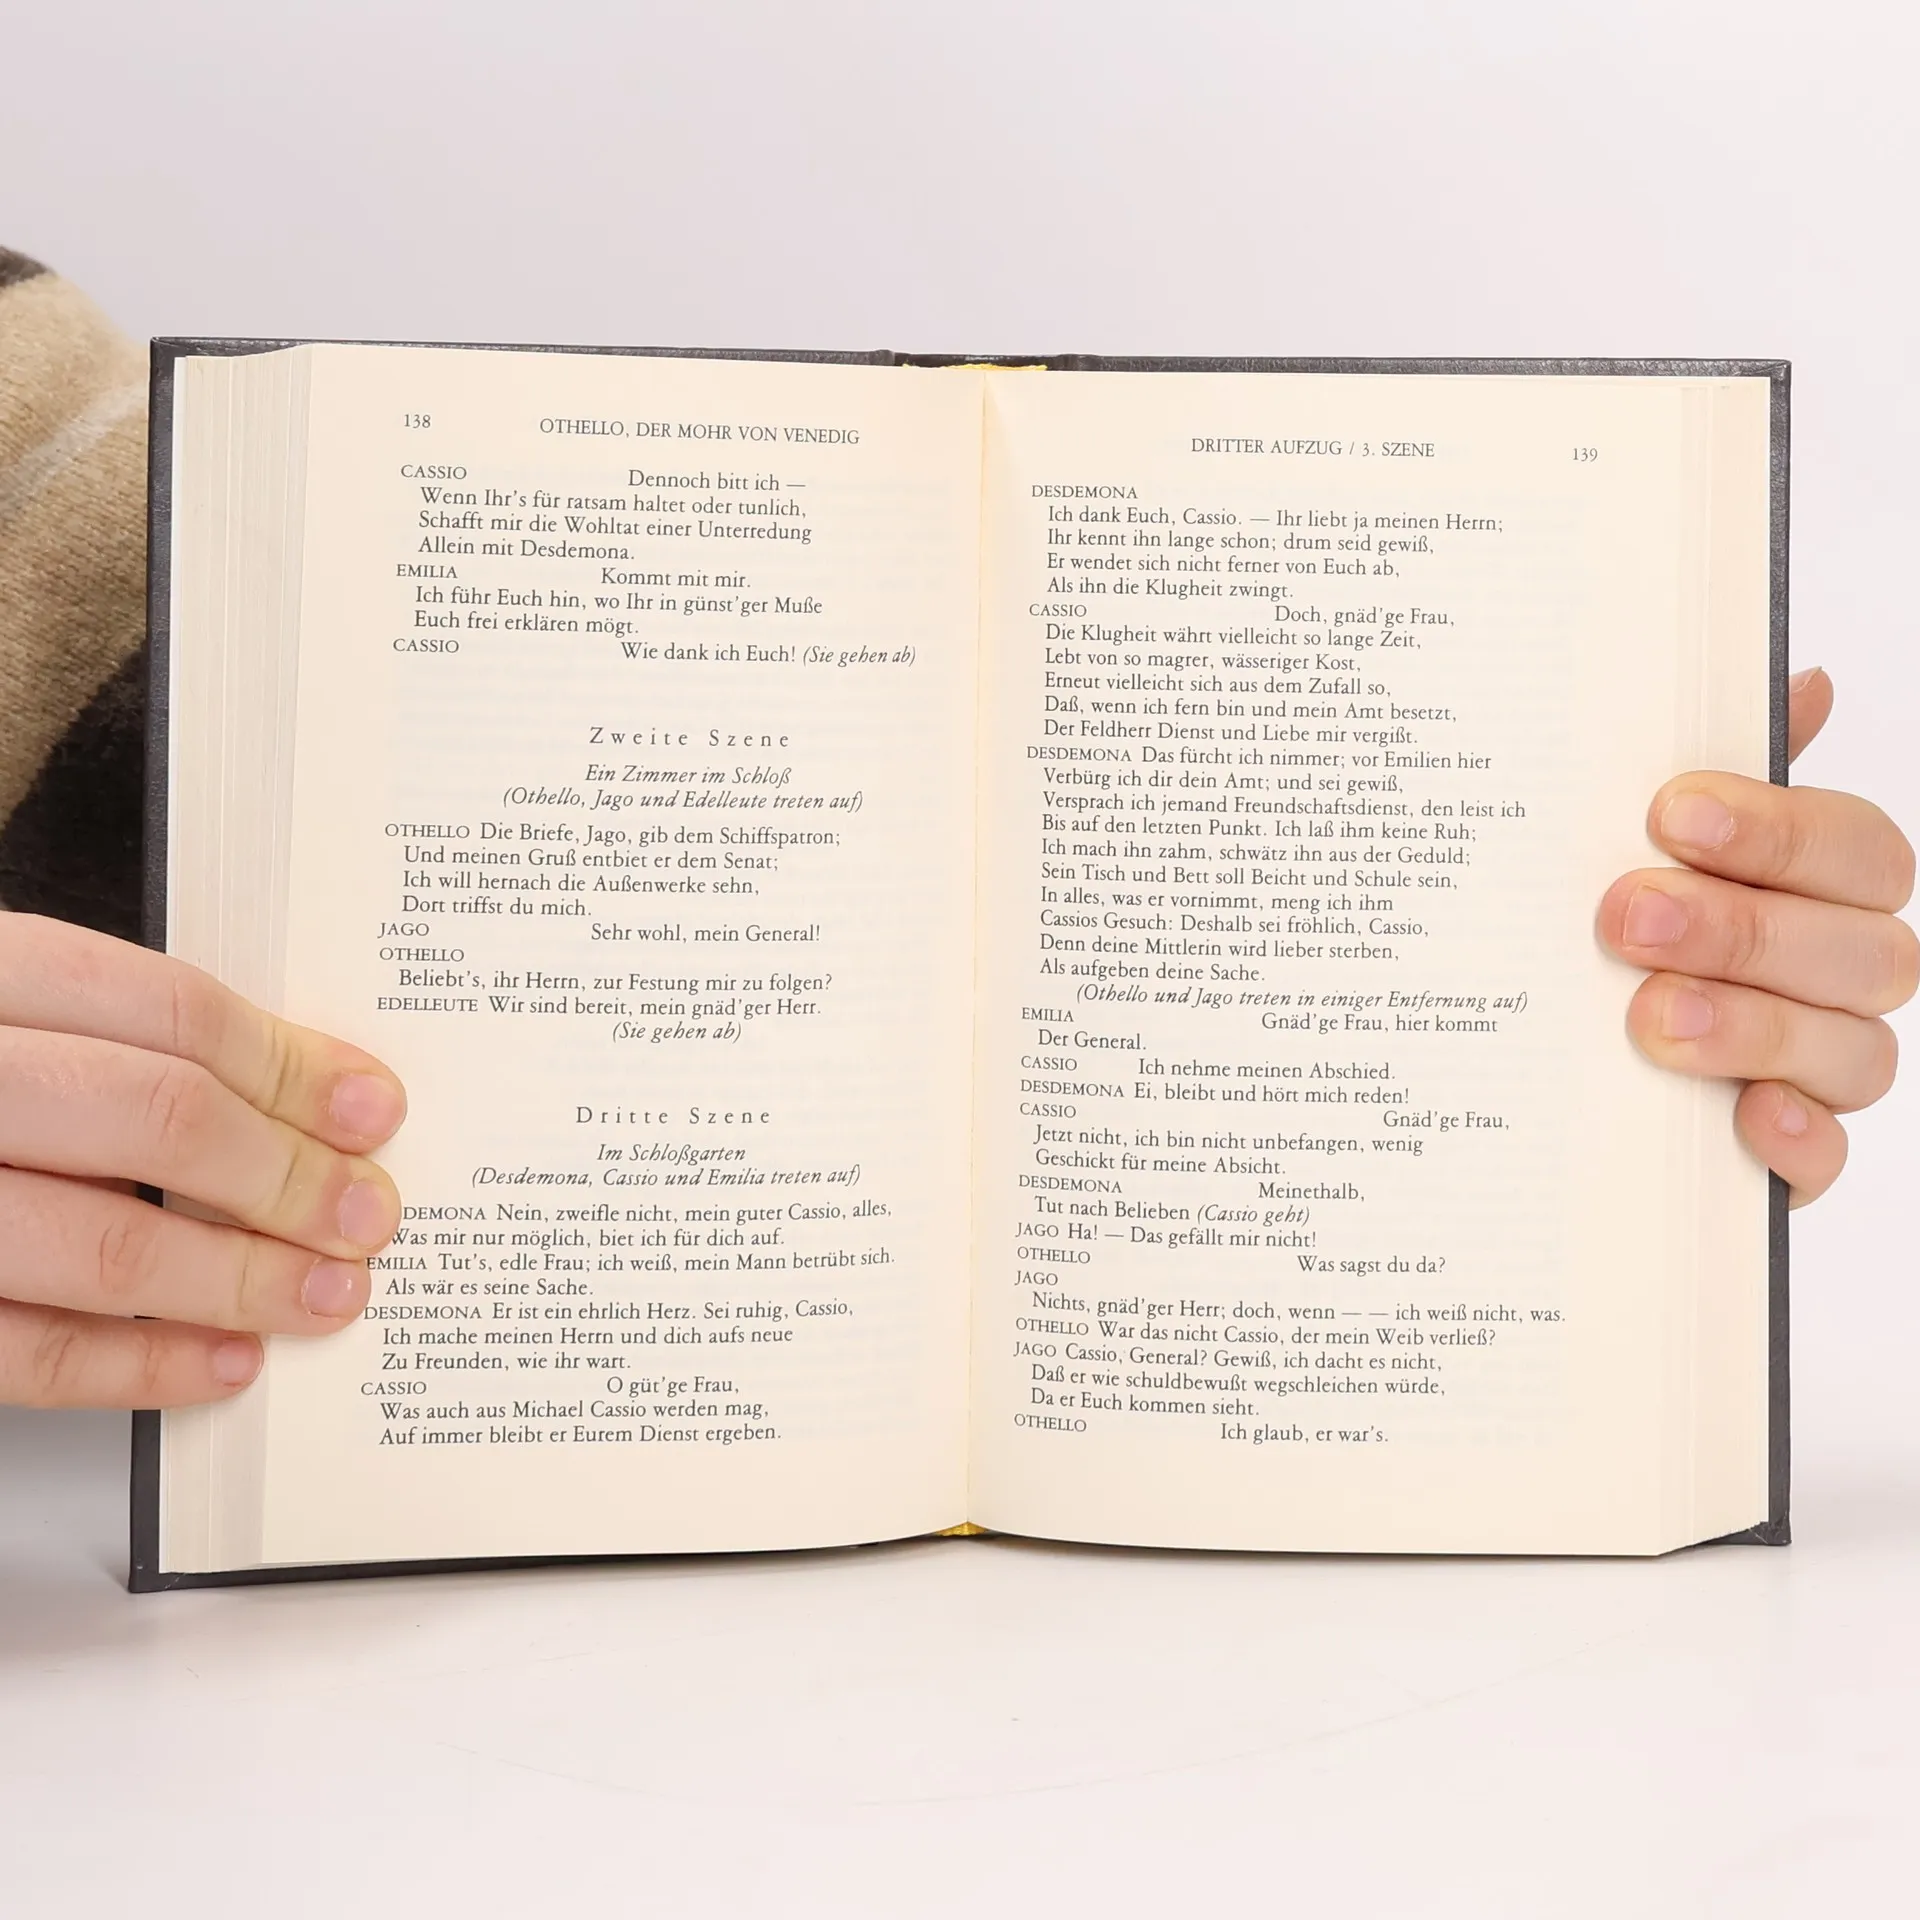 138 OTHELLO, DER MOHR VON VENEDIG
CASSIO Dennoch bitt ich —
Wenn Ihr's für ratsam haltet oder tunlich,
Schafft mir die Wohltat einer Unterredung
Allein mit Desdemona.
EMILIA Kommt mit mir.
Ich führ Euch hin, wo Ihr in günst'ger Muße
Euch frei erklären mögt.
CASSIO Wie dank ich Euch! (Sie gehen ab)
Zweite Szene
Ein Zimmer im Schloß
(Othello, Jago und Edelleute treten auf)
OTHELLO Die Briefe, Jago, gib dem Schiffspatron;
Und meinen Gruß entbiet er dem Senat;
Ich will hernach die Außenwerke sehn,
Dort triffst du mich.
JAGO Sehr wohl, mein General!
OTHELLO
Beliebt's, ihr Herrn, zur Festung mir zu folgen?
EDELLEUTE Wir sind bereit, mein gnäd'ger Herr.
(Sie gehen ab)
Dritte Szene
Im Schloßgarten
(Desdemona, Cassio und Emilia treten auf)
DEMONA Nein, zweifle nicht, mein guter Cassio, alles,
Was mir nur möglich, biet ich für dich auf.
EMILIA Tut's, edle Frau; ich weiß, mein Mann betrübt sich.
Als wär es seine Sache.
DESDEMONA Er ist ein ehrlich Herz. Sei ruhig, Cassio,
Ich mache meinen Herrn und dich aufs neue
Zu Freunden, wie ihr wart.
CASSIO O güt'ge Frau,
Was auch aus Michael Cassio werden mag,
Auf immer bleibt er Eurem Dienst ergeben.
DRITTER AUFZUG / 3. SZENE 139
DESDEMONA
Ich dank Euch, Cassio. — Ihr liebt ja meinen Herrn;
Ihr kennt ihn lange schon; drum seid gewiß,
Er wendet sich nicht ferner von Euch ab,
Als ihn die Klugheit zwingt.
CASSIO Doch, gnäd'ge Frau,
Die Klugheit währt vielleicht so lange Zeit,
Lebt von so magrer, wässeriger Kost,
Erneut vielleicht sich aus dem Zufall so,
Daß, wenn ich fern bin und mein Amt besetzt,
Der Feldherr Dienst und Liebe mir vergißt.
DESDEMONA Das fürcht ich nimmer; vor Emilien hier
Verbürg ich dir dein Amt; und sei gewiß,
Versprach ich jemand Freundschaftsdienst, den leist ich
Bis auf den letzten Punkt. Ich laß ihm keine Ruh;
Ich mach ihn zahm, schwätz ihn aus der Geduld;
Sein Tisch und Bett soll Beicht und Schule sein,
In alles, was er vornimmt, meng ich ihm
Cassios Gesuch: Deshalb sei fröhlich, Cassio,
Denn deine Mittlerin wird lieber sterben,
Als aufgeben deine Sache.
(Othello und Jago treten in einiger Entfernung auf)
EMILIA Gnäd'ge Frau, hier kommt
Der General.
CASSIO Ich nehme meinen Abschied.
DESDEMONA Ei, bleibt und hört mich reden!
CASSIO Gnäd'ge Frau,
Jetzt nicht, ich bin nicht unbefangen, wenig
Geschickt für meine Absicht.
DESDEMONA Meinethalb,
Tut nach Belieben (Cassio geht)
JAGO Ha! — Das gefällt mir nicht!
OTHELLO Was sagst du da?
JAGO
Nichts, gnäd'ger Herr; doch, wenn — — ich weiß nicht, was.
OTHELLO War das nicht Cassio, der mein Weib verließ?
JAGO Cassio, General? Gewiß, ich dacht es nicht,
Daß er wie schuldbewußt wegschleichen würde,
Da er Euch kommen sieht.
OTHELLO Ich glaub, er war's.